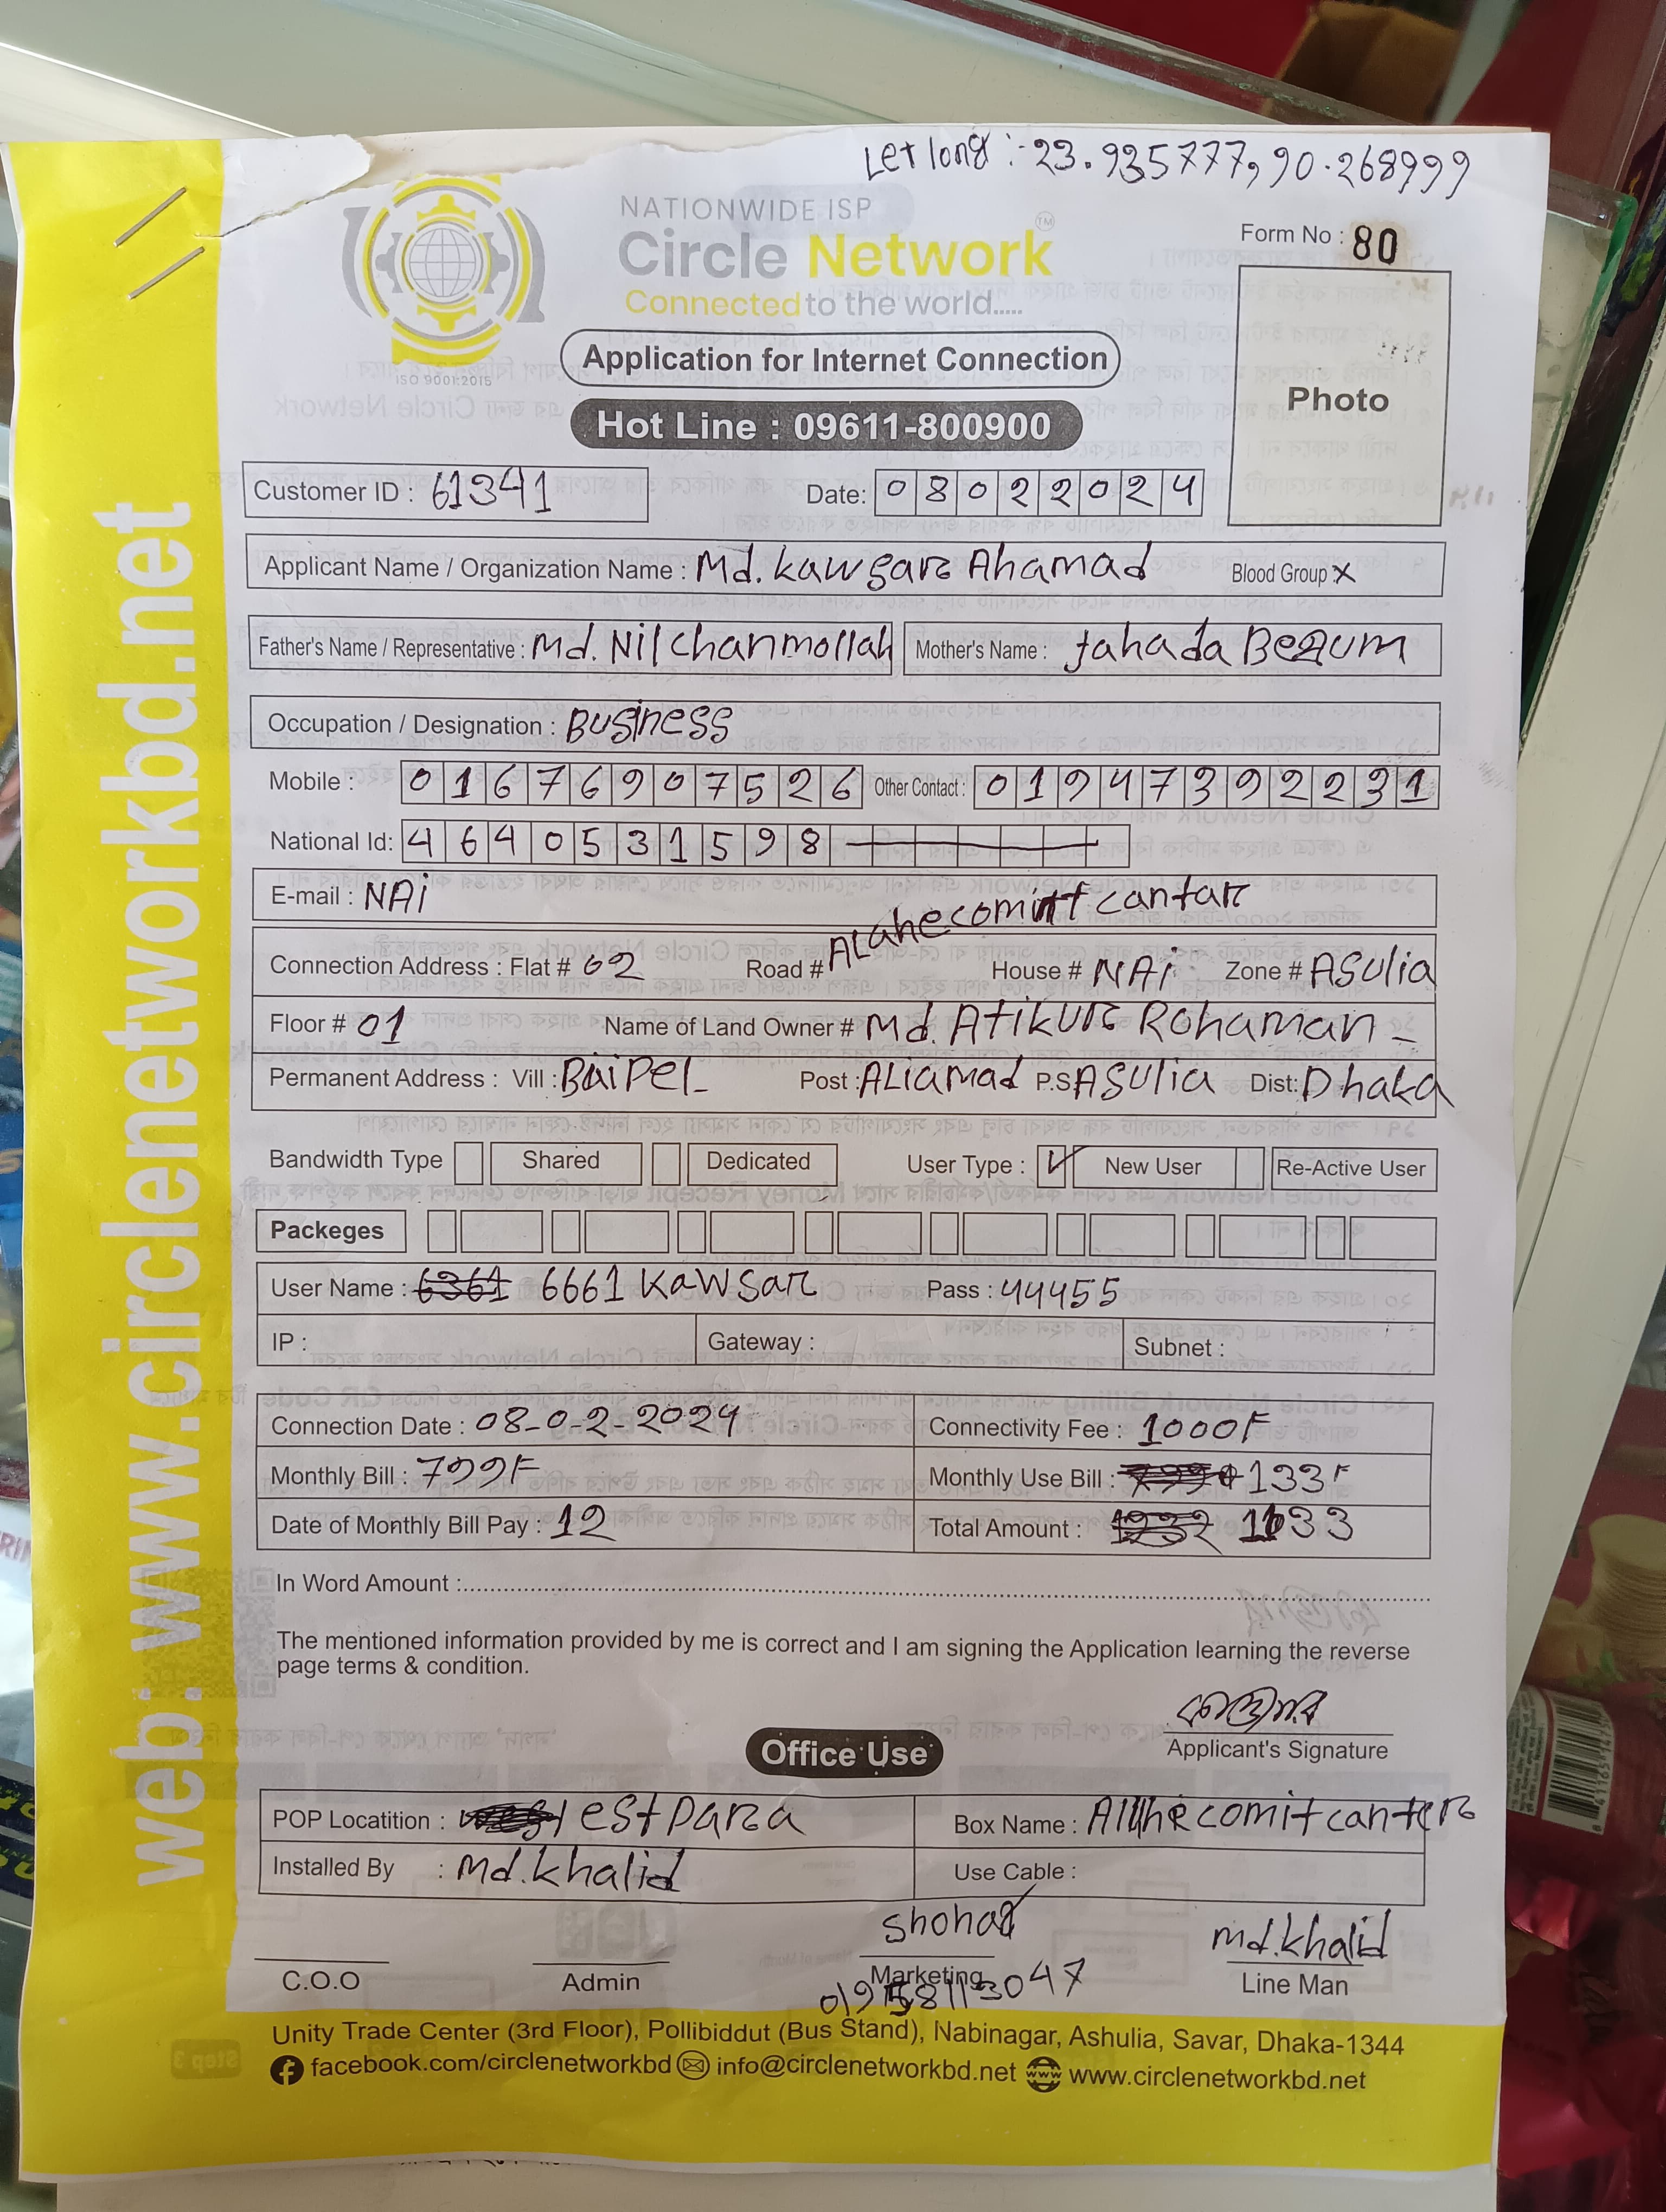 Let long :- 23.935777, 90.268999
NATIONWIDE ISP
Circle Network TM
Connected to the world.....
ISO 9001:2015
Form No : 80
Photo
Application for Internet Connection
Hot Line : 09611-800900
Customer ID : 61341 Date: 08022024
Applicant Name / Organization Name : Md. Kawsar Ahamad Blood Group : X
Father's Name / Representative : Md. Nil Chanmollah Mother's Name : Jahada Begum
Occupation / Designation : Business
Mobile : 01676907526 Other Contact : 01947392231
National Id: 4640531598
E-mail : NAi
Connection Address : Flat # 02 Road # ALahecomitt cantar House # NAi Zone # ASulia
Floor # 01 Name of Land Owner # Md. Atikur Rohaman
Permanent Address : Vill : BaiPel Post : ALiamad P.S ASulia Dist: Dhaka
Bandwidth Type Shared Dedicated User Type : New User Re-Active User
Packeges
User Name : 6361 6661 Kawsar Pass : 44455
IP : Gateway : Subnet :
Connection Date : 08-0-2-2024 Connectivity Fee : 1000/-
Monthly Bill : 799/- Monthly Use Bill : 133/-
Date of Monthly Bill Pay : 12 Total Amount : 1133
In Word Amount :
The mentioned information provided by me is correct and I am signing the Application learning the reverse
page terms & condition.
Applicant's Signature
Office Use
POP Locatition : estpara Box Name : Allhecomitcanter
Installed By : Md. Khalid Use Cable :
C.O.O
Admin
Shohag
Marketing
md. Khalid
Line Man
Unity Trade Center (3rd Floor), Pollibiddut (Bus Stand), Nabinagar, Ashulia, Savar, Dhaka-1344
facebook.com/circlenetworkbd info@circlenetworkbd.net www.circlenetworkbd.net
web: www.circlenetworkbd.net